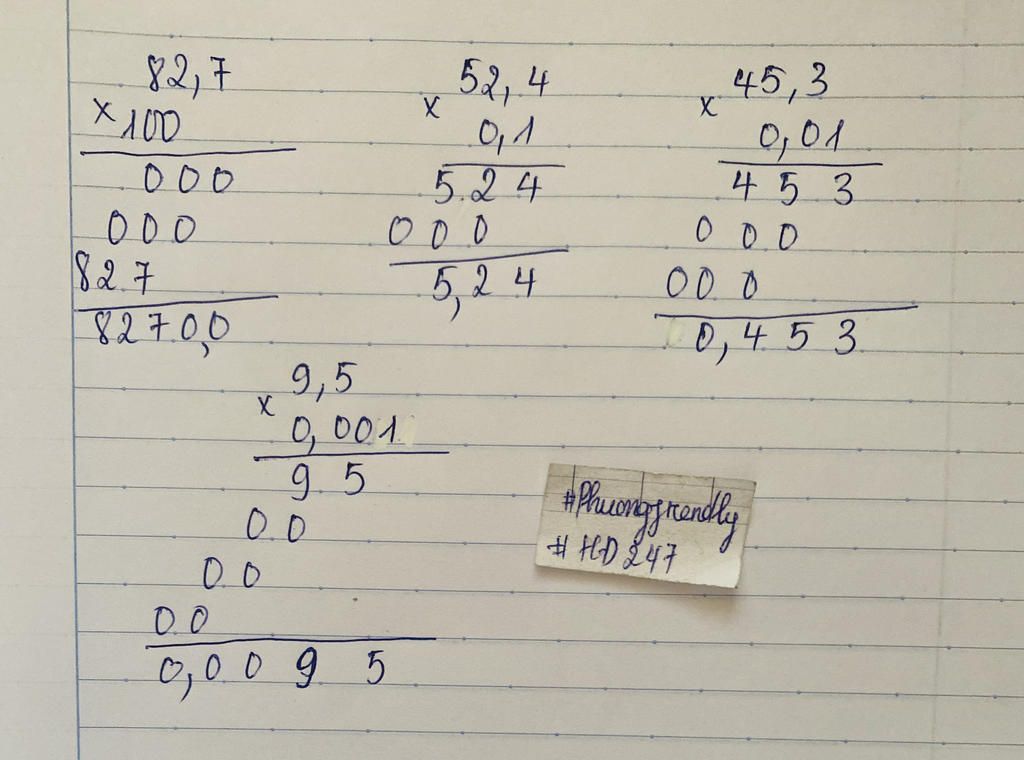 82,7
× 100
000
000
827
8270,0
52,4
× 0,1
524
000
5,24
45,3
× 0,01
453
000
000
0,453
9,5
× 0,001
95
00
00
00
0,0095
#Phuongfriendly
#HD247